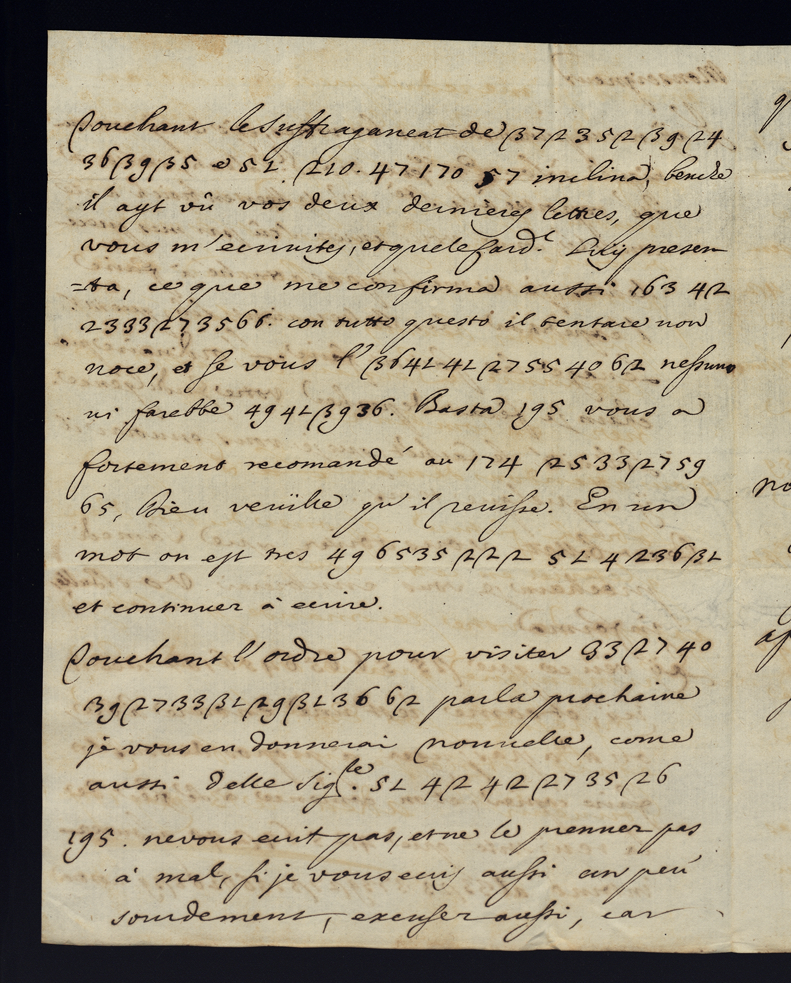 Touchant le suffraganeat de 37 2 35 2 39 24
36 39 35 e 51. 210. 47 170 57 inclina, benche
il ayt vû vos deux dernieres lettres, que
vous m'ecrivites, et que le Card.l Luy presen
=ta, ce que me confirma aussi 163 42
2333 27 3566. con tutto questo il tentare non
noce, et se vous l' 36 41 41 27 55 40 62 nessuno
vi farebbe 49 41 39 36. Basta 195 vous a
fortement recomandé au 174 25 33 27 59
65, Dieu veüille qu'il reuisse. En un
mot on est tres 49 65 35 222 51 4 236 31
et continuer à ecrire.
Touchant l'ordre pour visiter 33 27 40
39 27 33 31 29 31 36 62 par la prochaine
je vous en donnerai nouvelle, come
aussi delle Sig.le 51 42 42 27 35 26
195. ne vous ecrit pas, et ne le prenner pas
à mal, si je vous ecris aussi un peu
sourdement, excuser aussi, car